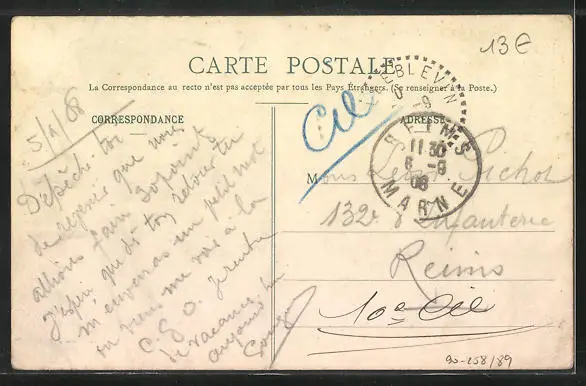 13€
CARTE POSTALE
La Correspondance au recto n'est pas acceptée par tous les Pays Étrangers. (Se renseigner à la Poste.)
CORRESPONDANCE
ADRESSE
5/9/08
Dépêche-toi
de que nous
allions faire
J'espère que dès ton retour tu
m'enverras un petit mot
ou viens me voir à la
C. G. O. Je rentre
de vacances
aujourd'hui
REIMS
11 30
6 -9
08
MARNE
Mons Pichot
132e d'Infanterie
Reims
10e Cie
Cie
90-258/89